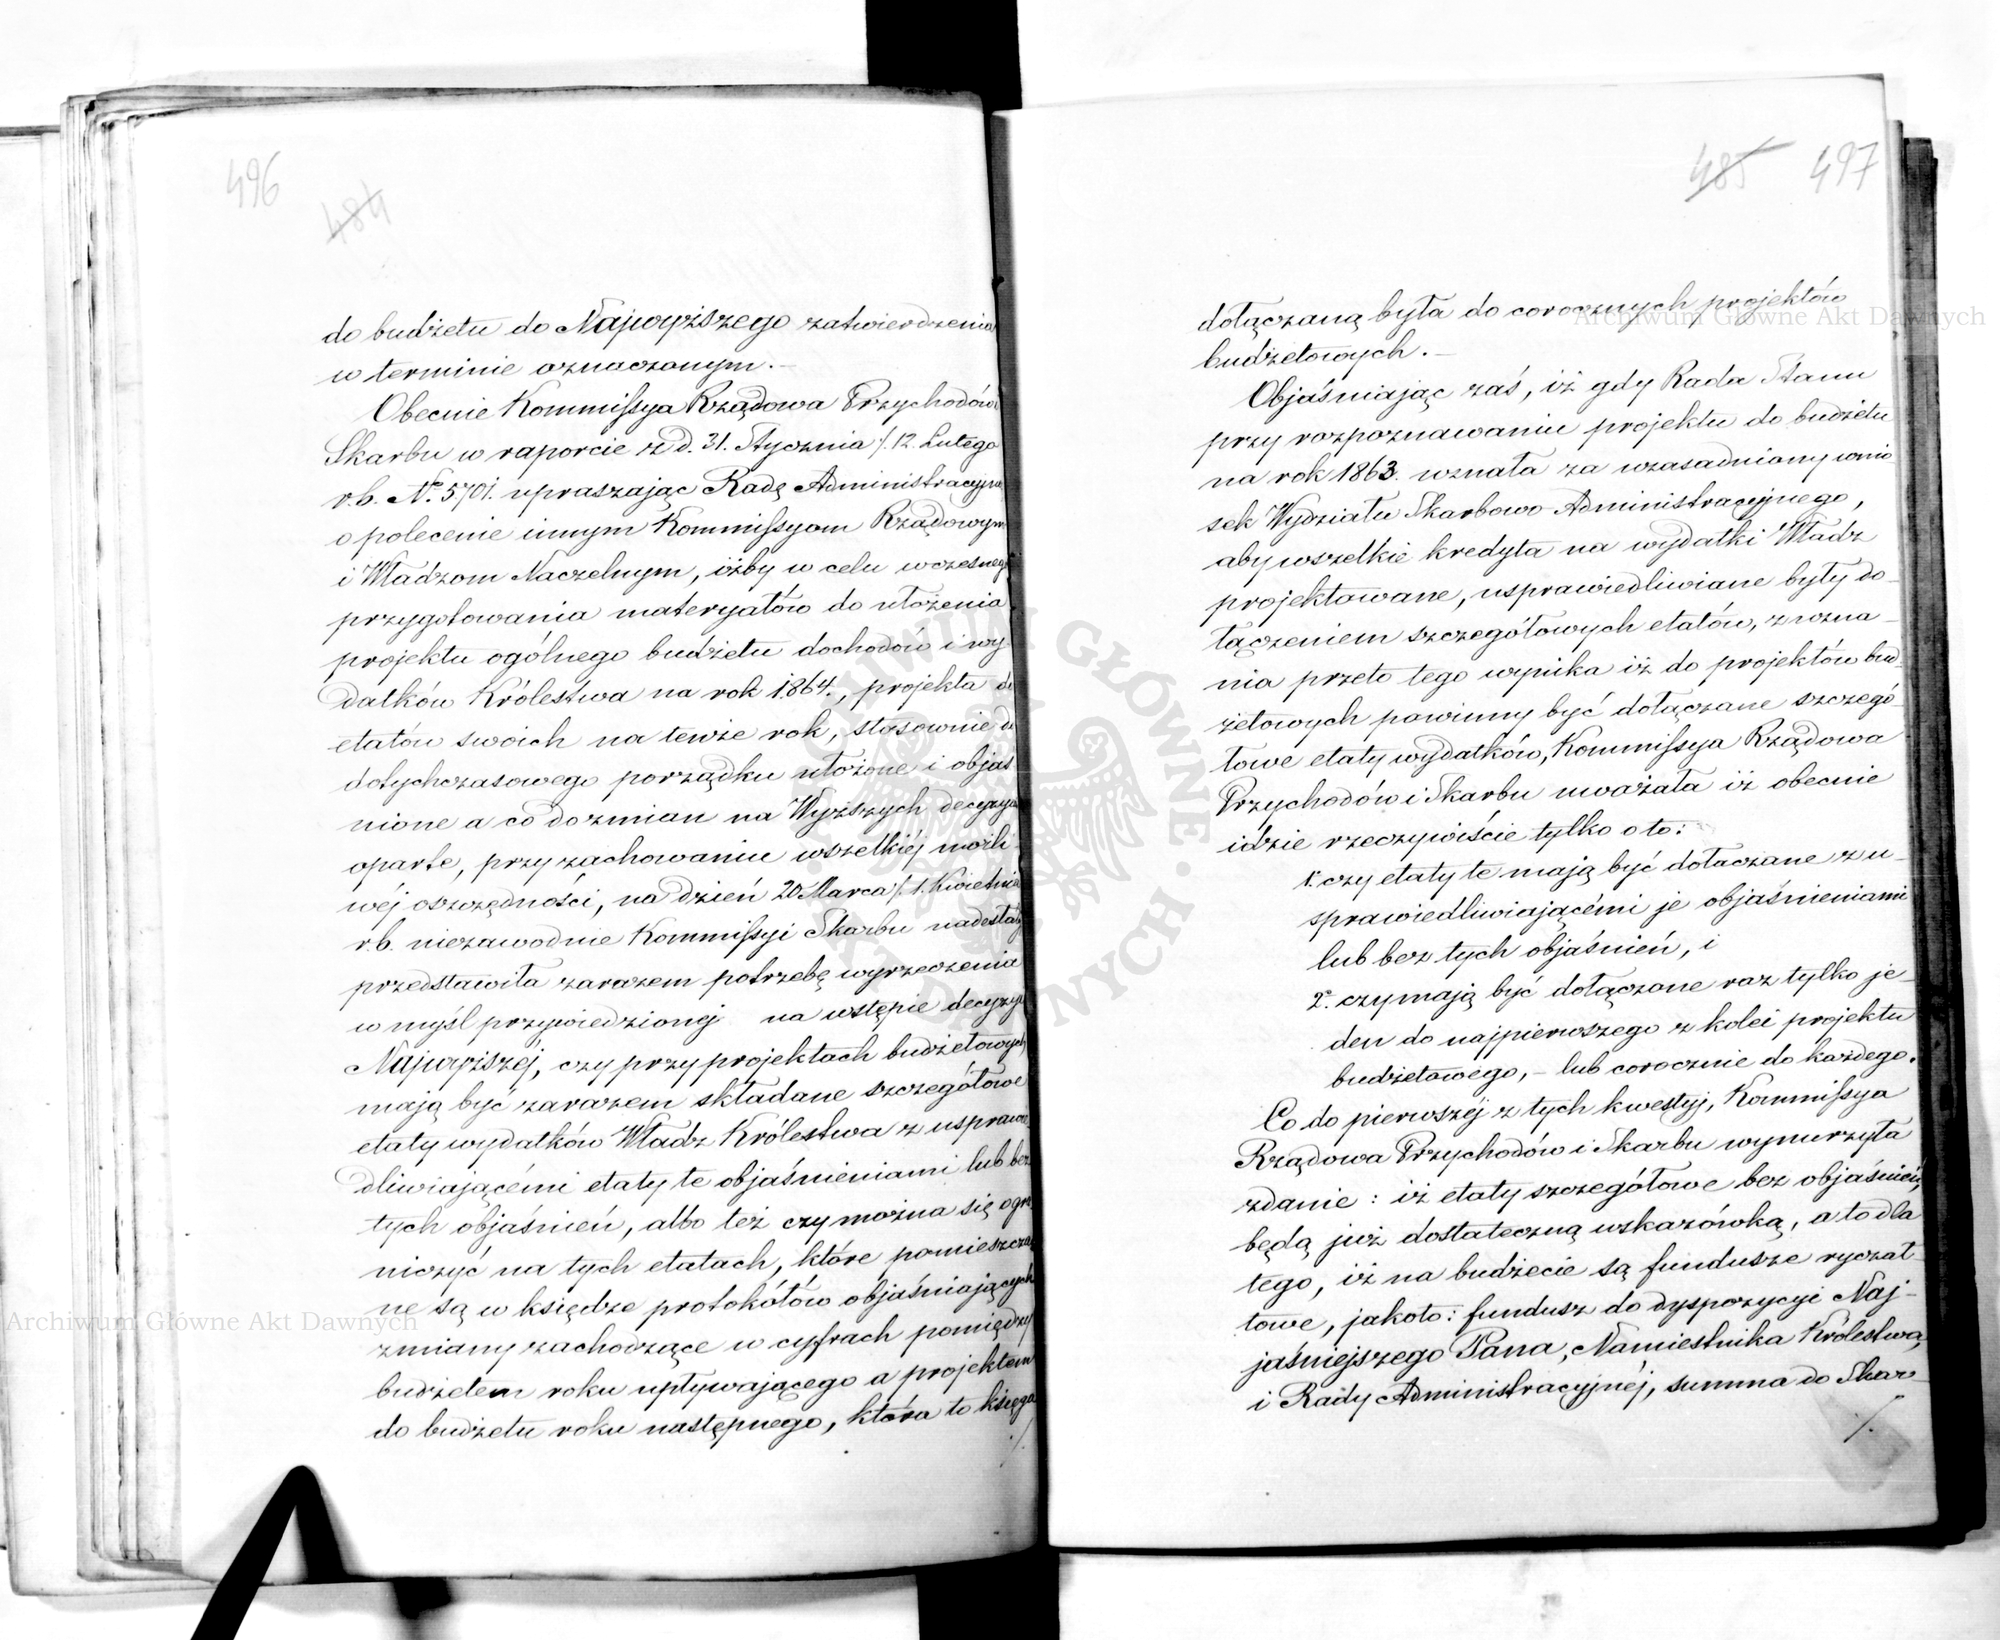 496
484
do budżetu do Najwyższego zatwierdzenia
w terminie oznaczonym.
Obecnie Kommissya Rządowa Przychodów
Skarbu w raporcie z d. 31. Stycznia /. 12. Lutego
r.b. No. 5701. upraszając Radę Administracyjną
o polecenie innym Kommissyom Rządowym
i Władzom Naczelnym, iżby w celu wczesnego
przygotowania materyałów do ułożenia
projektu ogólnego budżetu dochodów i wy-
datków Królestwa na rok 1864., projekta do
etatów swoich na tenże rok, stosownie do
dotychczasowego porządku ułożone i objaś-
nione a co do zmian na Wyższych decyzyach
oparte, przy zachowaniu wszelkiéj możli-
wéj oszczędności, na dzień 20 Marca /. 1. Kwietnia
r.b. niezawodnie Kommissyi Skarbu nadesłały
przedstawiła zarazem potrzebę wyrzeczenia
w myśl przywiedzionej na wstępie decyzyi
Najwyższéj, czy przy projektach budżetowych
mają być zarazem składane szczegółowe
etaty wydatków Władz Królestwa z usprawie-
dliwiającémi etaty te objaśnieniami lub bez
tych objaśnień, albo też czy można się ogra-
niczyć na tych etatach, które pomieszczo-
ne są w księdze protokółów objaśniających
zmiany zachodzące w cyfrach pomiędzy
budżetem roku upływającego a projektem
do budżetu roku następnego, która to księga
/.
485 497
dołączaną była do corocznych projektów
budżetowych.
Objaśniając zaś, iż gdy Rada Stanu
przy rozpoznawaniu projektu do budżetu
na rok 1863. uznała za uzasadniony wnio
sek Wydziału Skarbowo-Administracyjnego,
aby wszelkie kredyta na wydatki Władz
projektowane, usprawiedliwiane były do-
łączeniem szczegółowych etatów, z uzna-
nia przeto tego wynika iż do projektów bud-
żetowych powinny być dołączane szczegó-
łowe etaty wydatków, Kommissya Rządowa
Przychodów i Skarbu uważała iż obecnie
idzie rzeczywiście tylko o to:
1o. czy etaty te mają być dołaczane z u-
sprawiedliwiającémi je objaśnieniami
lub bez tych objaśnień, i
2o. czy mają być dołączone raz tylko je-
den do najpierwszego z kolei projektu
budżetowego, – lub corocznie do każdego.
Co do pierwszéj z tych kwestyj, Kommissya
Rządowa Przychodów i Skarbu wynurzyła
zdanie: iż etaty szczegółowe bez objaśnień,
będą już dostateczną wskazówką, a to dla
tego, iż na budżecie są fundusze ryczał-
towe, jakoto: fundusz do dyspozycyi Naj-
jaśniejszego Pana, Namiestnika Królestwa,
i Rady Administracyjnéj, summa do Skar-
/.
Archiwum Główne Akt Dawnych
Archiwum Główne Akt Dawnych
ARCHIWUM GŁÓWNE AKT DAWNYCH